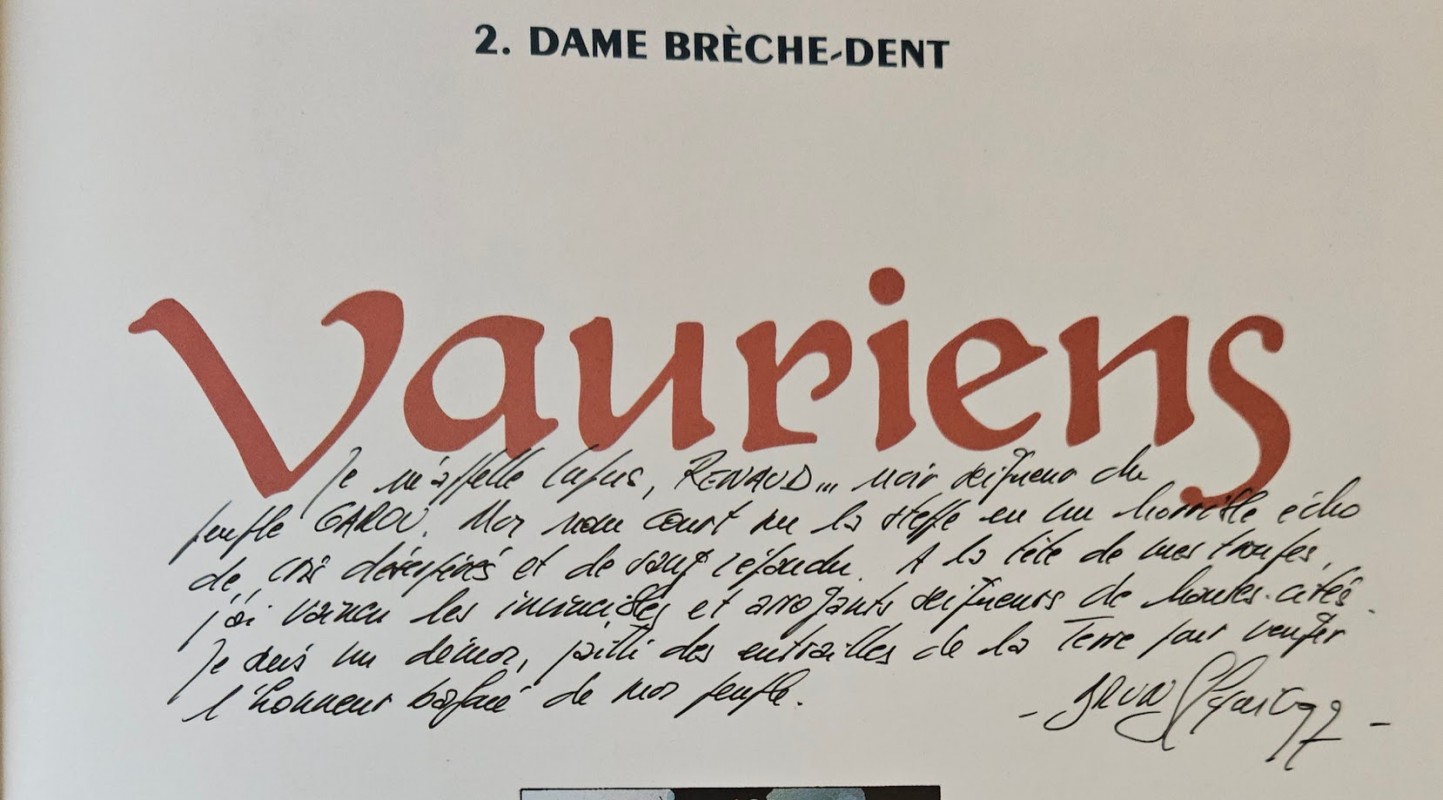 2. DAME BRÈCHE-DENT
Vauriens
Je m'appelle Lupus, RENAUD... noir seigneur du
peuple GAROU. Mon nom court sur la steppe en un horrible écho
de cris désespérés et de sang répandu. A la tête de mes troupes,
j'ai vaincu les invincibles et arrogants seigneurs de hautes-cités.
Je suis un démon, jailli des entrailles de la Terre pour venger
l'honneur bafoué de mon peuple.